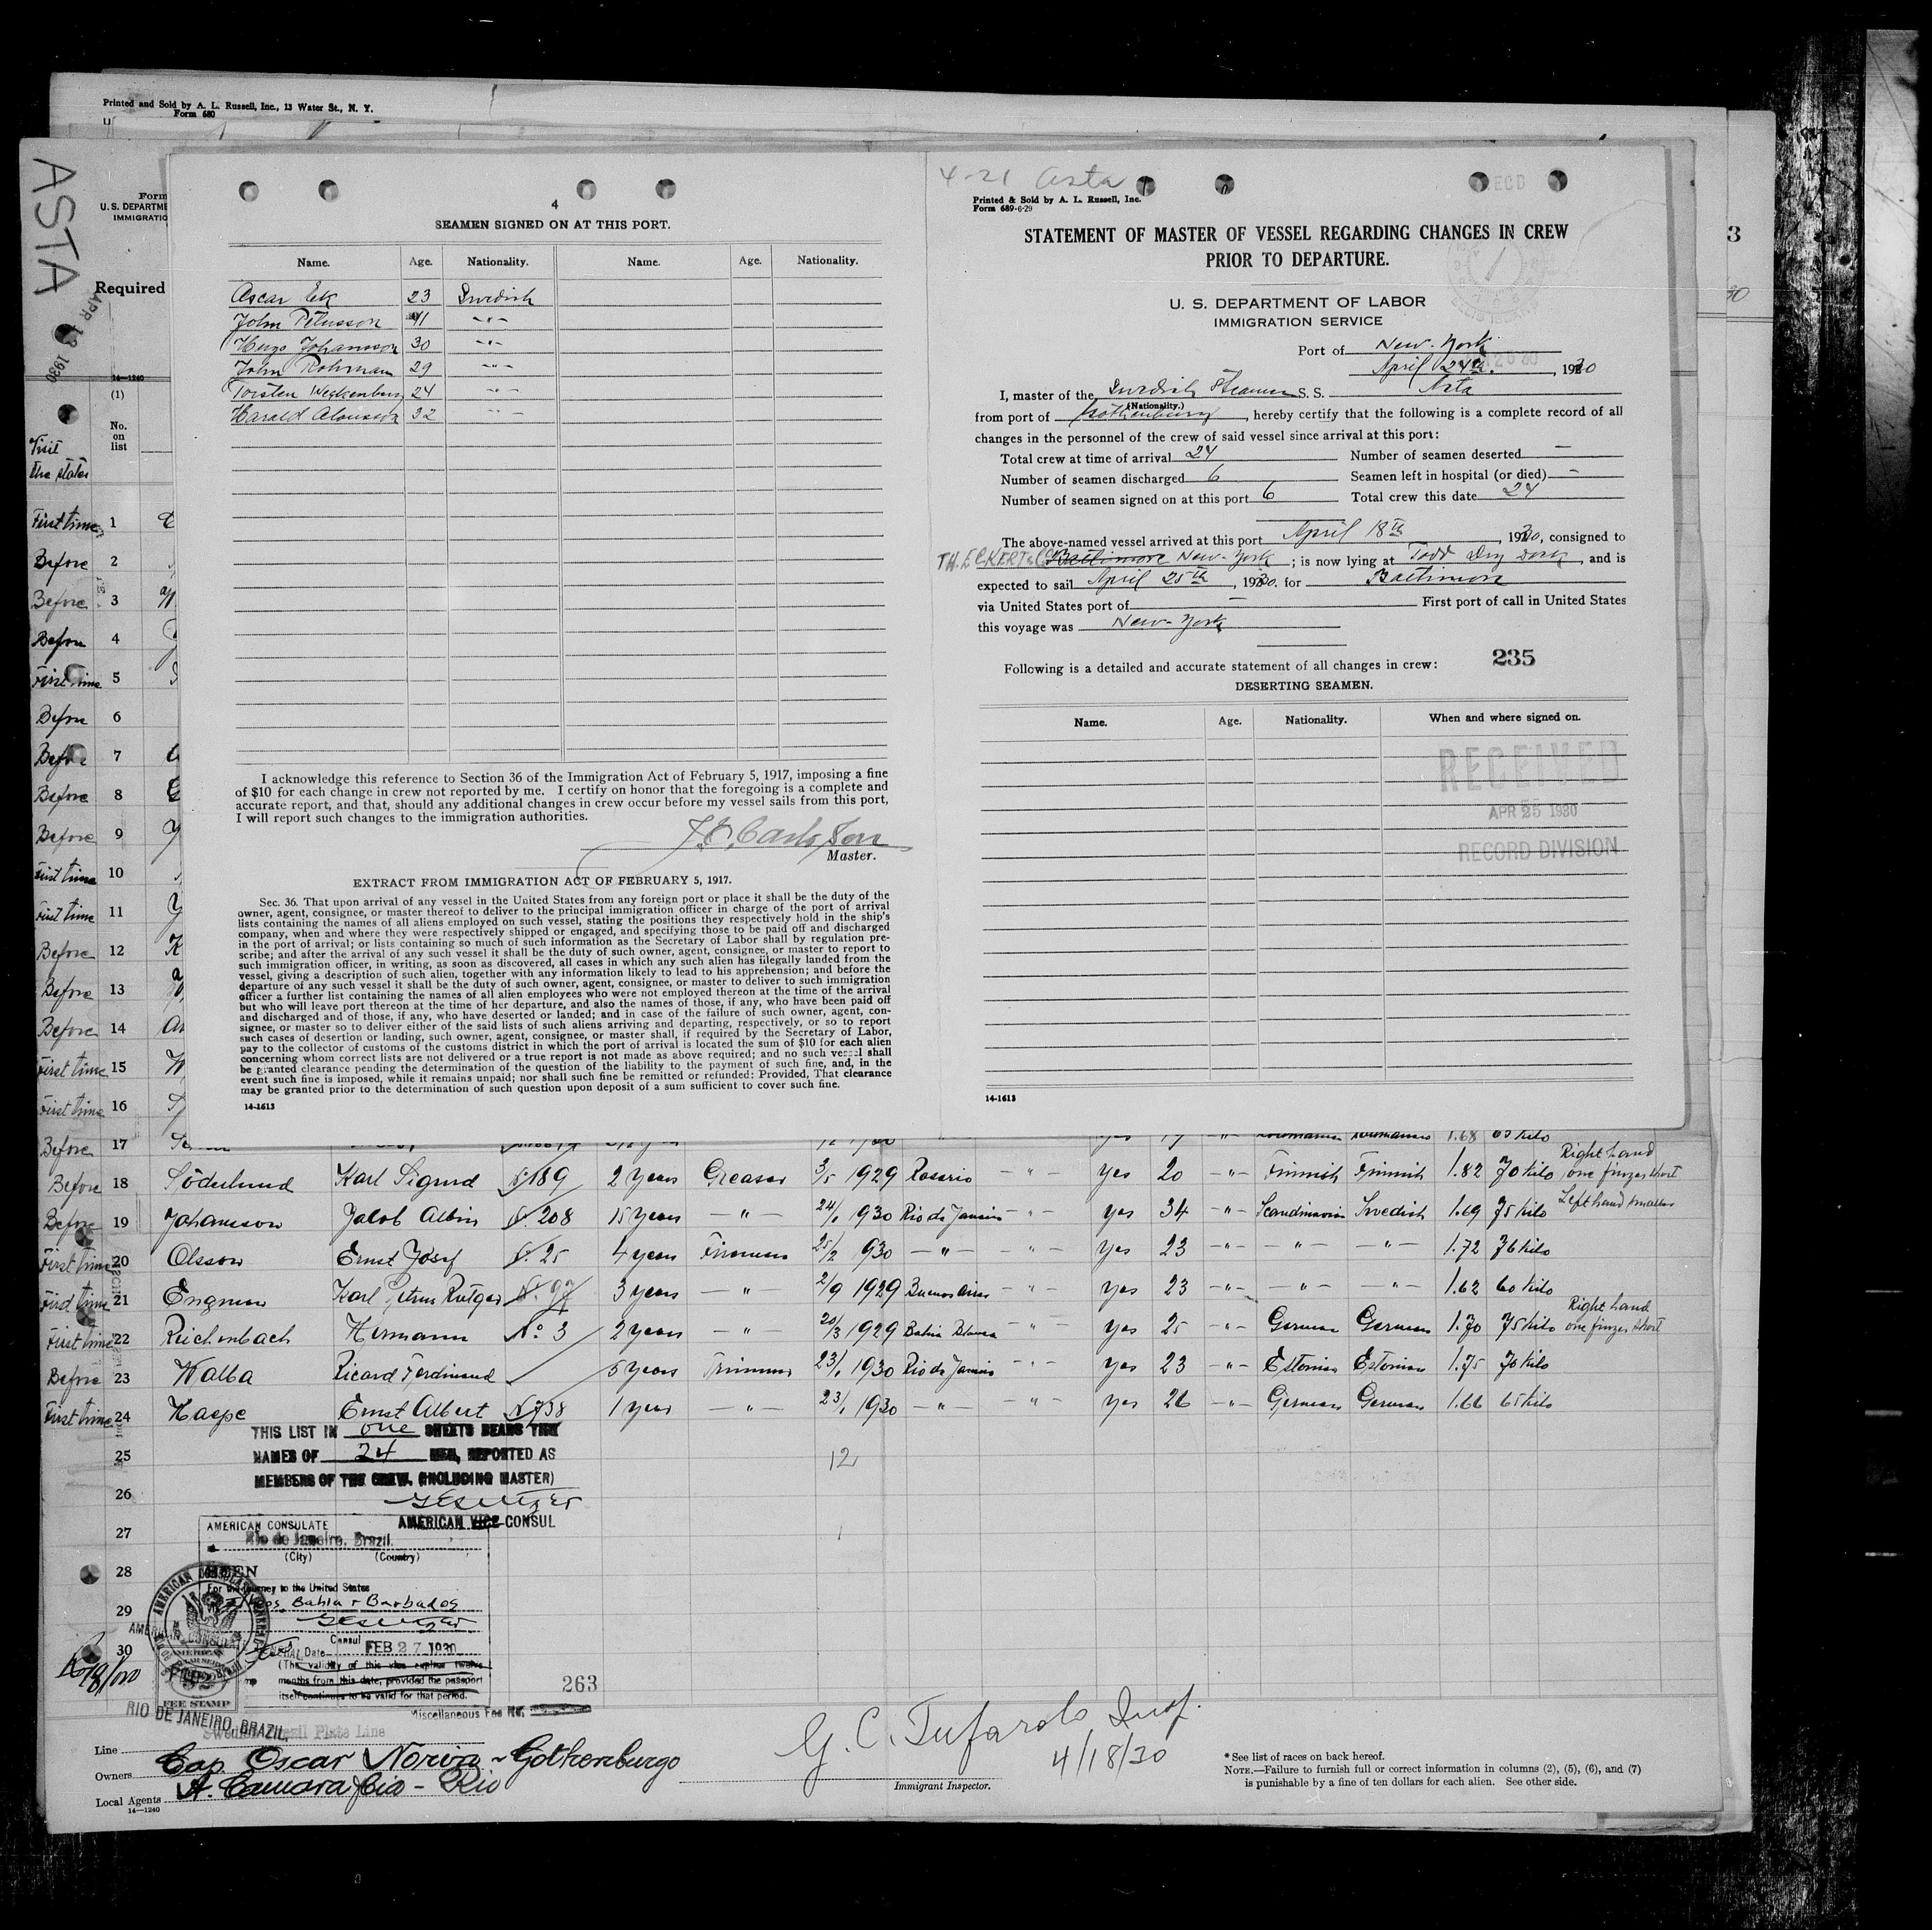 Printed and Sold by A. L. Russell, Inc., 13 Water St., N. Y.
Form 680
ASTA
APR 18 1930
Form
U. S. DEPARTME
IMMIGRATIO
Required
14—1240
(1)
No.
on
list
Visit
the states
3
4
SEAMEN SIGNED ON AT THIS PORT.
Name. Age. Nationality. Name. Age. Nationality.
Oscar Ek 23 Swedish
John Petersson 41 -"-
Hugo Johansson 30 -"-
John Rohman 29 -"-
Torsten Weckenburg 24 -"-
Harald 32 -"-
I acknowledge this reference to Section 36 of the Immigration Act of February 5, 1917, imposing a fine
of $10 for each change in crew not reported by me. I certify on honor that the foregoing is a complete and
accurate report, and that, should any additional changes in crew occur before my vessel sails from this port,
I will report such changes to the immigration authorities.
Carlsson
Master.
EXTRACT FROM IMMIGRATION ACT OF FEBRUARY 5, 1917.
Sec. 36. That upon arrival of any vessel in the United States from any foreign port or place it shall be the duty of the
owner, agent, consignee, or master thereof to deliver to the principal immigration officer in charge of the port of arrival
lists containing the names of all aliens employed on such vessel, stating the positions they respectively hold in the ship's
company, when and where they were respectively shipped or engaged, and specifying those to be paid off and discharged
in the port of arrival; or lists containing so much of such information as the Secretary of Labor shall by regulation pre-
scribe; and after the arrival of any such vessel it shall be the duty of such owner, agent, consignee, or master to report to
such immigration officer, in writing, as soon as discovered, all cases in which any such alien has illegally landed from the
vessel, giving a description of such alien, together with any information likely to lead to his apprehension; and before the
departure of any such vessel it shall be the duty of such owner, agent, consignee, or master to deliver to such immigration
officer a further list containing the names of all alien employees who were not employed thereon at the time of the arrival
but who will leave port thereon at the time of her departure, and also the names of those, if any, who have been paid off
and discharged and of those, if any, who have deserted or landed; and in case of the failure of such owner, agent, con-
signee, or master so to deliver either of the said lists of such aliens arriving and departing, respectively, or so to report
such cases of desertion or landing, such owner, agent, consignee, or master shall, if required by the Secretary of Labor,
pay to the collector of customs of the customs district in which the port of arrival is located the sum of $10 for each alien
concerning whom correct lists are not delivered or a true report is not made as above required; and no such vessel shall
be granted clearance pending the determination of the question of the liability to the payment of such fine, and, in the
event such fine is imposed, while it remains unpaid; nor shall such fine be remitted or refunded: Provided, That clearance
may be granted prior to the determination of such question upon deposit of a sum sufficient to cover such fine.
14-1613
4-21 Asta
Printed & Sold by A. L. Russell, Inc.
Form 689-6-29
STATEMENT OF MASTER OF VESSEL REGARDING CHANGES IN CREW
PRIOR TO DEPARTURE.
U. S. DEPARTMENT OF LABOR
IMMIGRATION SERVICE
Port of New-York
April 24th, 1930
I, master of the Swedish Steamer S. S. Asta
(Nationality.)
from port of Gothenburg, hereby certify that the following is a complete record of all
changes in the personnel of the crew of said vessel since arrival at this port:
Total crew at time of arrival 24 Number of seamen deserted —
Number of seamen discharged 6 Seamen left in hospital (or died) —
Number of seamen signed on at this port 6 Total crew this date 24
The above-named vessel arrived at this port April 18th, 1930, consigned to
TH. ECKERT & Co Baltimore New-York; is now lying at Todd Dry Dock, and is
expected to sail April 25th, 1930. for Baltimore
via United States port of — First port of call in United States
this voyage was New-York
235
Following is a detailed and accurate statement of all changes in crew:
DESERTING SEAMEN.
Name. Age. Nationality. When and where signed on.
RECEIVED
APR 25 1930
RECORD DIVISION
14-1613
First time 1
Before 2
Before 3
Before 4
First time 5
Before 6
Before 7
Before 8
Before 9
First time 10
First time 11
Before 12
Before 13
Before 14
First time 15
First time 16
Before 17 1.68 65 kilo
Before 18 Söderlund Karl Sigurd 189 2 years Greaser 3/5 1929 Rosario -"- yes 20 -"- Finnish Finnish 1.82 70 kilo Right hand one finger short
Before 19 Johansson Jacob Albin 208 15 years -"- 24/1 1930 Rio de Janeiro -"- yes 34 -"- Scandinavian Swedish 1.69 75 kilo Left hand smaller
First time 20 Olsson Ernst Josef 25 4 years Fireman 25/2 930 -"- -"- yes 23 -"- -"- -"- 1.72 76 kilo
First time 21 Engman Karl Petrus Rutger 97 3 years -"- 2/9 1929 Buenos Aires -"- yes 23 -"- -"- -"- 1.62 60 kilo
First time 22 Reichenbach Hermann No 3 2 years -"- 20/3 1929 Bahia Blanca -"- yes 25 -"- German German 1.70 75 kilo Right hand one finger short
Before 23 Walba Ricard Ferdinand 5 years Trimmer 23/1 1930 Rio de Janeiro -"- yes 23 -"- Estonian Estonian 1.75 70 kilo
First time 24 Haepe Ernst Albert 738 1 year -"- 23/1 1930 -"- -"- yes 26 -"- German German 1.66 65 kilo
THIS LIST IN one SHEETS BEARS THE
NAMES OF 24 MEN, REPORTED AS
MEMBERS OF THE CREW. (INCLUDING MASTER)
AMERICAN VICE CONSUL
25
12
26
27
28
29
30
AMERICAN CONSULATE
Rio de Janeiro, Brazil.
(City) (Country)
SEEN
For the journey to the United States
Bahia & Barbados
Consul
Date FEB 27 1930
(The validity of this visa expires twelve
months from this date, provided the passport
itself continues to be valid for that period.
263
Miscellaneous Fee No.
FEE STAMP
RIO DE JANEIRO, BRAZIL
Swedish Brazil Plate Line
Line
Owners Cap. Oscar Norvin - Gothemburgo
Local Agents A. Camara & Cia - Rio
14—1240
G. C. Tufarolo Insp.
4/18/30
Immigrant Inspector.
* See list of races on back hereof.
NOTE.—Failure to furnish full or correct information in columns (2), (5), (6), and (7)
is punishable by a fine of ten dollars for each alien. See other side.